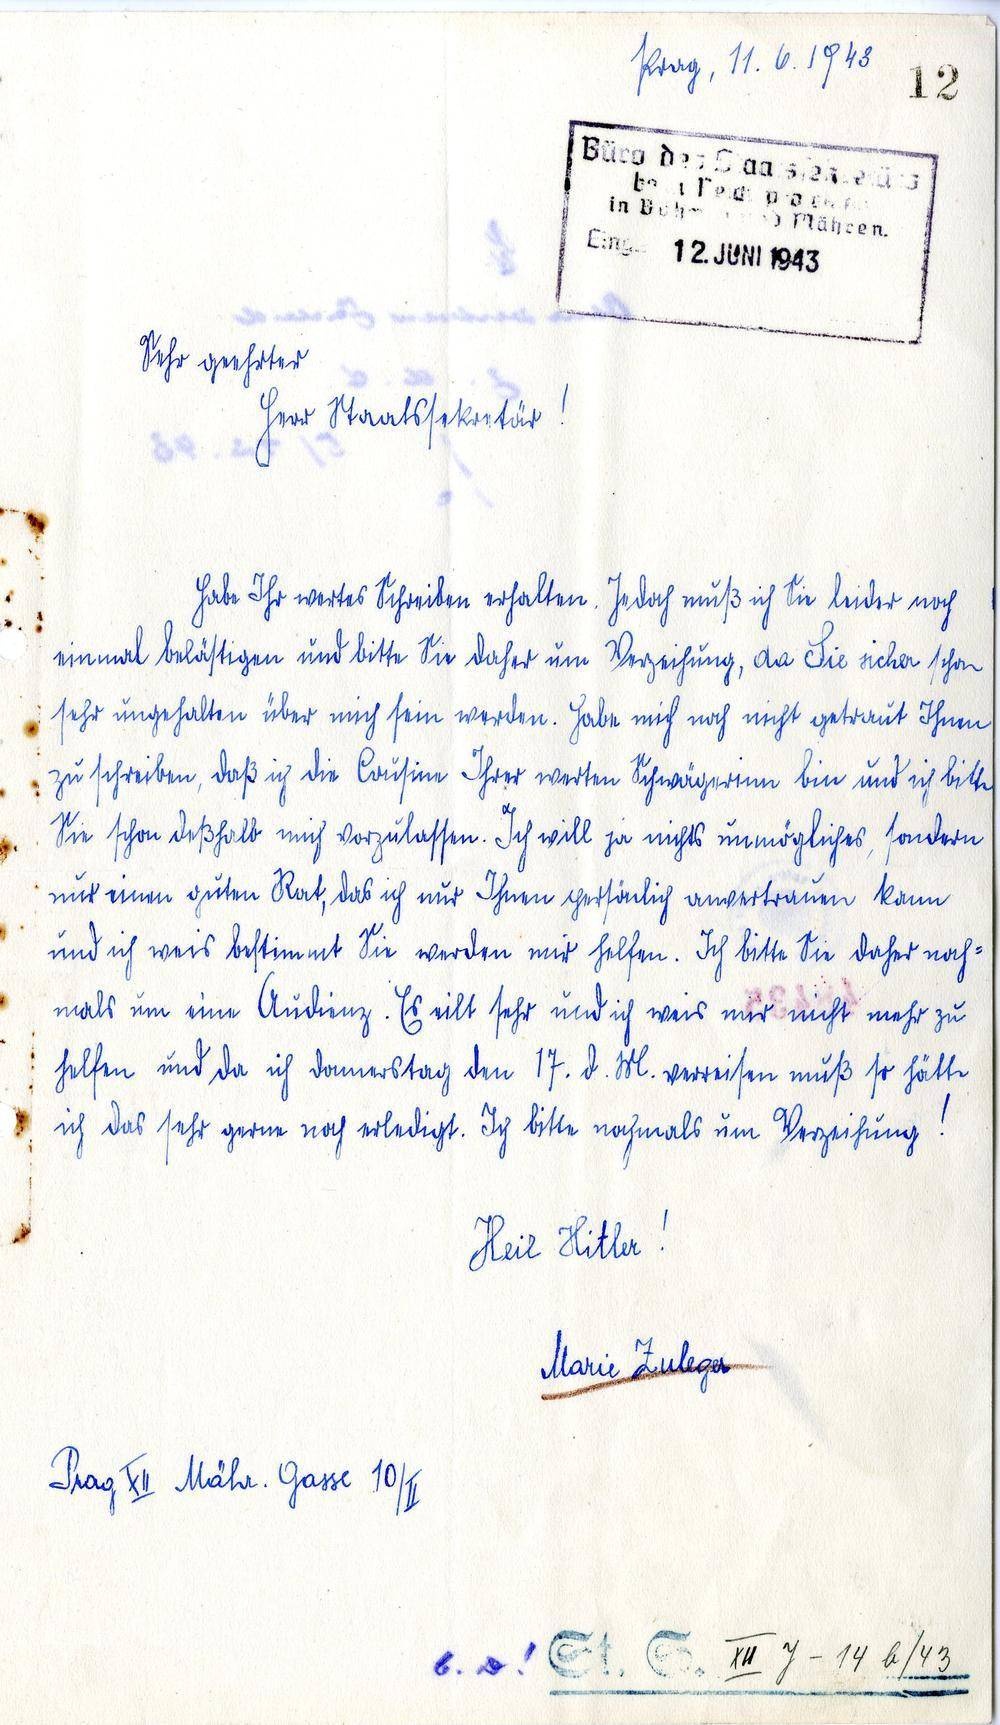 Prag, 11. 6. 1943
12
Büro des Staatssekretärs
beim Reichsprotektor
in Böhmen und Mähren.
Eing. 12. JUNI 1943
Sehr geehrter
Herr Staatssekretär!
Habe Ihr wertes Schreiben erhalten. Jedoch muß ich Sie leider noch
einmal belästigen und bitte Sie daher um Verzeihung, da Sie sicher schon
sehr ungehalten über mich sein werden. Habe mich noch nicht getraut Ihnen
zu schreiben, daß ich die Cousine Ihrer werten Schwägerinn bin und ich bitte
Sie schon deßhalb mich vorzulassen. Ich will ja nichts unmögliches, sondern
nur einen guten Rat, das ich nur Ihnen persönlich anvertrauen kann
und ich weis bestimmt Sie werden mir helfen. Ich bitte Sie daher noch=
mals um eine Audienz. Es eilt sehr und ich weis mir nicht mehr zu
helfen und da ich donnerstag den 17. d. M. verreisen muß so hätte
ich das sehr gerne noch erledigt. Ich bitte nochmals um Verzeihung!
Heil Hitler!
Marie Zuleger
Prag XII Mähr. Gasse 10/II
St. S. XII J - 14 b/43